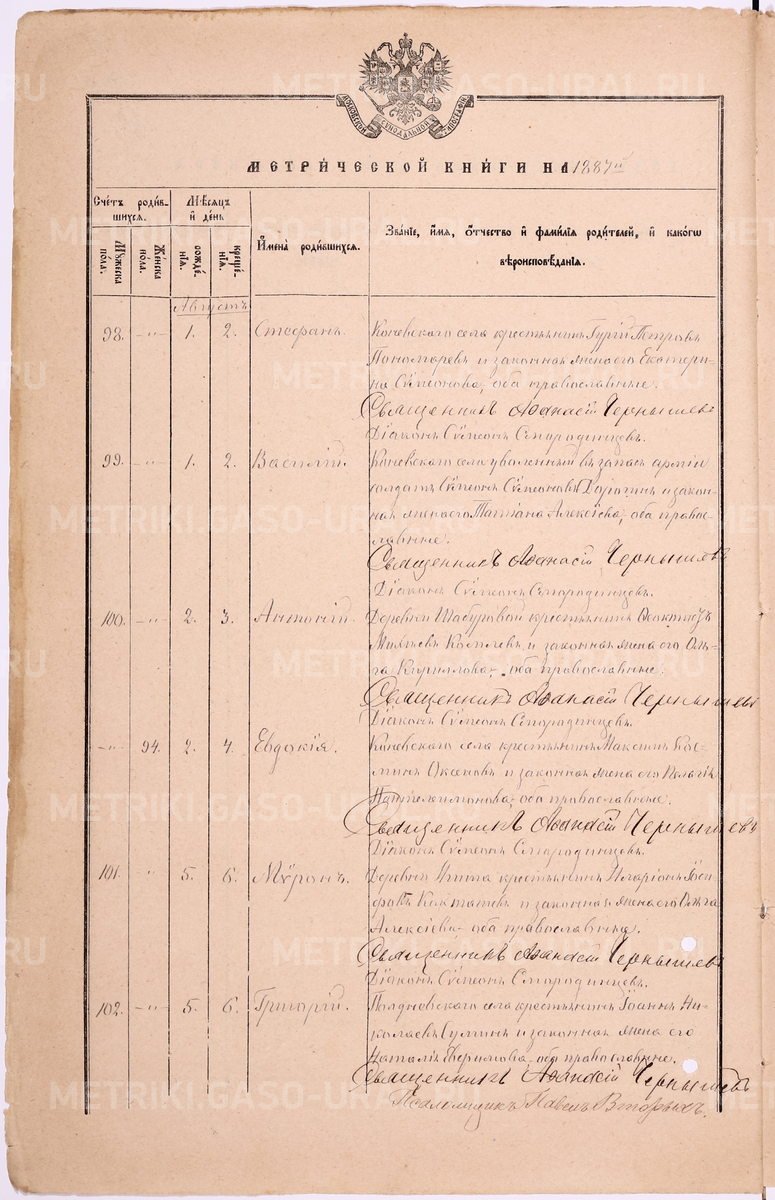 МОСКОВСКОЙ СѴНОДАЛЬНОЙ ТИПОГРАФІИ
МЕТРИ́ЧЕСКОЙ КНИ́ГИ НА 1887 й
Сче́тъ роди́в-
шихся.
Му́жеска по́ла.
Же́нска по́ла.
Мѣ́сяцъ
и҆ де́нь
рожде́-нїя.
креще́-нїя.
И҆мена̀ роди́вшихся.
Зва́нїе, и҆́мя, ѻ҆́тчество и҆ фами́лїя роди́телей, и҆ како́гѡ
вѣроисповѣ́данїя.
Августъ
98. -"- 1. 2. Стефанъ. села крестьянинъ Гурій Петровъ
Пономаревъ и законная жена его Екатери-
на Сѵмеонова, оба православные.
Священникъ Аѳанасій Чернышевъ
Діаконъ Сѵмеонъ Смородинцевъ.
99. -"- 1. 2. Василій. села уволенный въ запасъ арміи
солдатъ Сѵмеонъ Сѵмеоновъ и закон-
ная жена его Татіана Алексіева, оба право-
славные.
Священникъ Аѳанасій Чернышевъ
Діаконъ Сѵмеонъ Смородинцевъ.
100. -"- 2. 3. Антоній. Деревни Шабуровой крестьянинъ
и законная жена его Оль-
га Кирилова, оба православные.
Священникъ Аѳанасій Чернышевъ
Діаконъ Сѵмеонъ Смородинцевъ.
-"- 94. 2. 4. Евдокія. села крестьянинъ Максимъ Кос-
минъ Оксеновъ и законная жена его Пелагія
Пантелеимонова, оба православные.
Священникъ Аѳанасій Чернышевъ
Діаконъ Сѵмеонъ Смородинцевъ.
101. " 5. 6. Мѵронъ. Деревни крестьянинъ Иларіонъ Іоси-
фовъ и законная жена его Ольга
Алексіева, оба православные.
Священникъ Аѳанасій Чернышевъ
Діаконъ Сѵмеонъ Смородинцевъ.
102. -"- 5. 6. Григорій. Полдневского села крестьянинъ Іоаннъ Ни-
колаевъ и законная жена его
Наталія Ефримова, оба православные.
Священникъ Аѳанасій Чернышевъ
Псаломщикъ Павелъ Вторыхъ.
METRIKI.GASO-URAL.RU